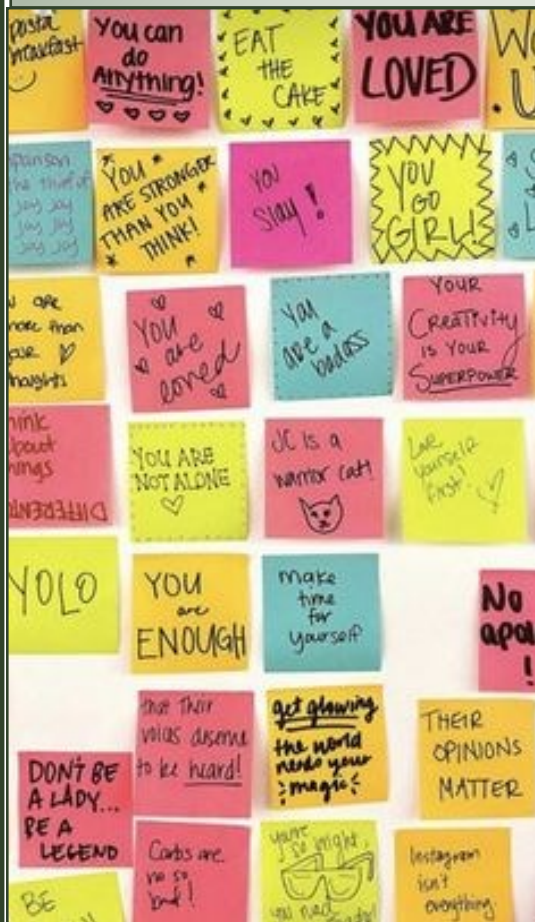 pasta
breakfast
You can
do
Anything!
EAT
THE
CAKE
YOU ARE
LOVED
the thief of
joy joy
joy joy
joy joy
YOU
ARE STRONGER
THAN YOU
THINK!
YOU
Slay!
YOU
GO
GIRL!
are
more than
thoughts
YOU
are
loved
You
are a
badass
YOUR
Creativity
IS YOUR
SUPERPOWER
DIFFERENT
YOU ARE
NOT ALONE
JC is a
warrior cat!
Love
yourself
first!
YOLO
YOU
are
ENOUGH
make
time
for
yourself
No
!
that Their
voices deserve
to be heard!
get glowing
the world
needs your
magic
THEIR
OPINIONS
MATTER
DON'T BE
A LADY...
BE A
LEGEND
Carbs are
no so
bad!
you're
so bright,
you need
Instagram
isn't
everything.
BE